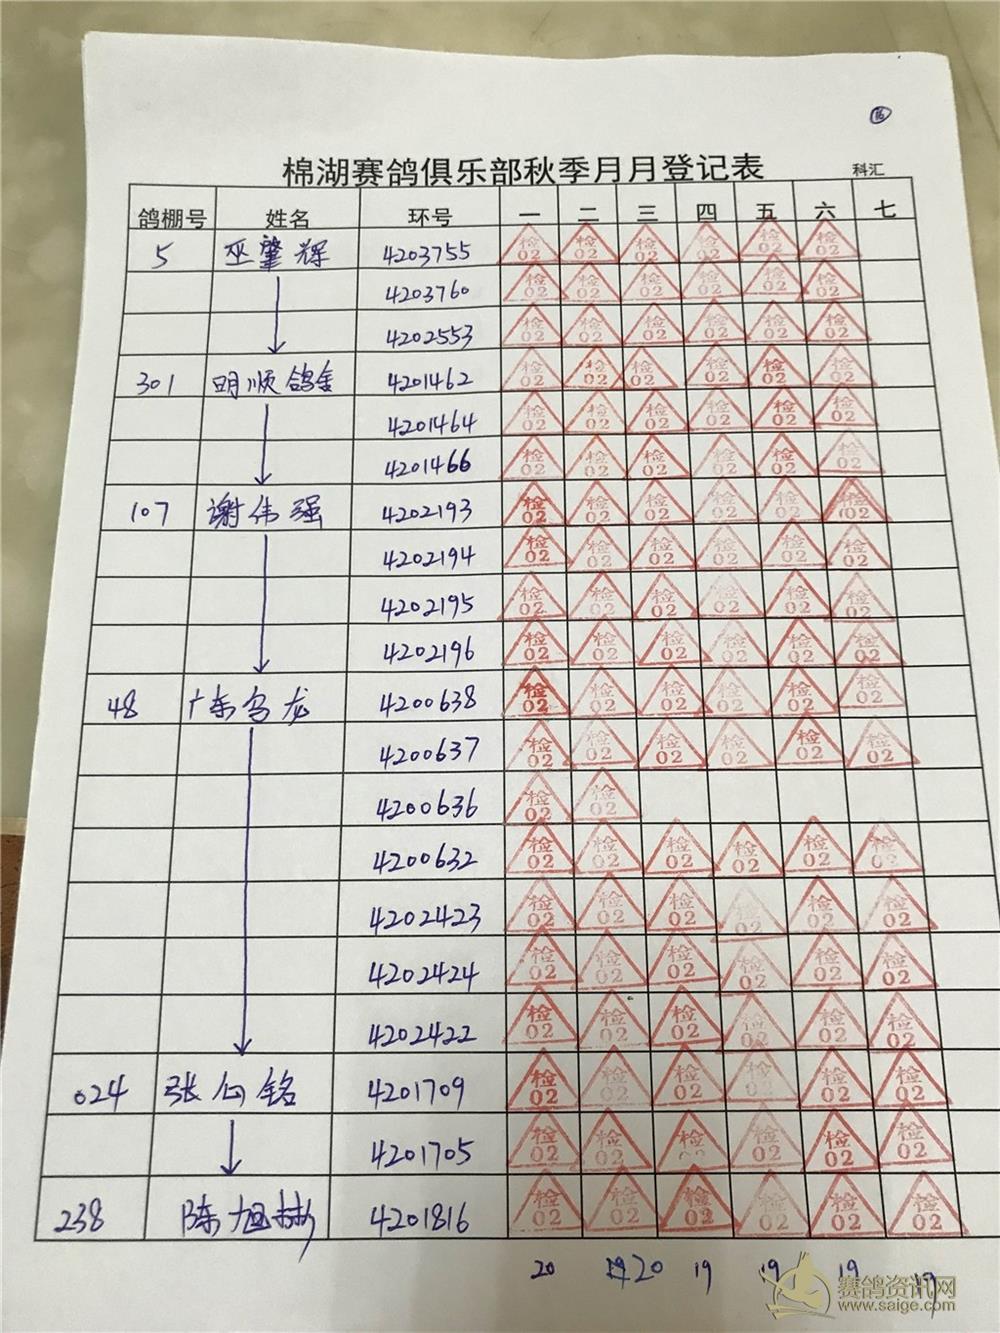 16
棉湖赛鸽俱乐部秋季月月登记表 科汇
鸽棚号 姓名 环号 一 二 三 四 五 六 七
5 巫肇辉 4203755 检02 检02 检02 检02 检02 检02
4203760 检02 检02 检02 检02 检02 检02
4202553 检02 检02 检02 检02 检02 检02
301 明顺鸽舍 4201462 检02 检02 检02 检02 检02 检02
4201464 检02 检02 检02 检02 检02 检02
4201466 检02 检02 检02 检02 检02 检02
107 谢伟强 4202193 检02 检02 检02 检02 检02 检02
4202194 检02 检02 检02 检02 检02 检02
4202195 检02 检02 检02 检02 检02 检02
4202196 检02 检02 检02 检02 检02 检02
48 广东乌龙 4200638 检02 检02 检02 检02 检02 检02
4200637 检02 检02 检02 检02 检02 检02
4200636 检02 检02
4200632 检02 检02 检02 检02 检02 检02
4202423 检02 检02 检02 检02 检02 检02
4202424 检02 检02 检02 检02 检02 检02
4202422 检02 检02 检02 检02 检02 检02
024 张 铭 4201709 检02 检02 检02 检02 检02 检02
4201705 检02 检02 检02 检02 检02 检02
238 陈旭彬 4201816 检02 检02 检02 检02 检02 检02
20 20 19 19 19 19
赛鸽资讯网
www.saige.com